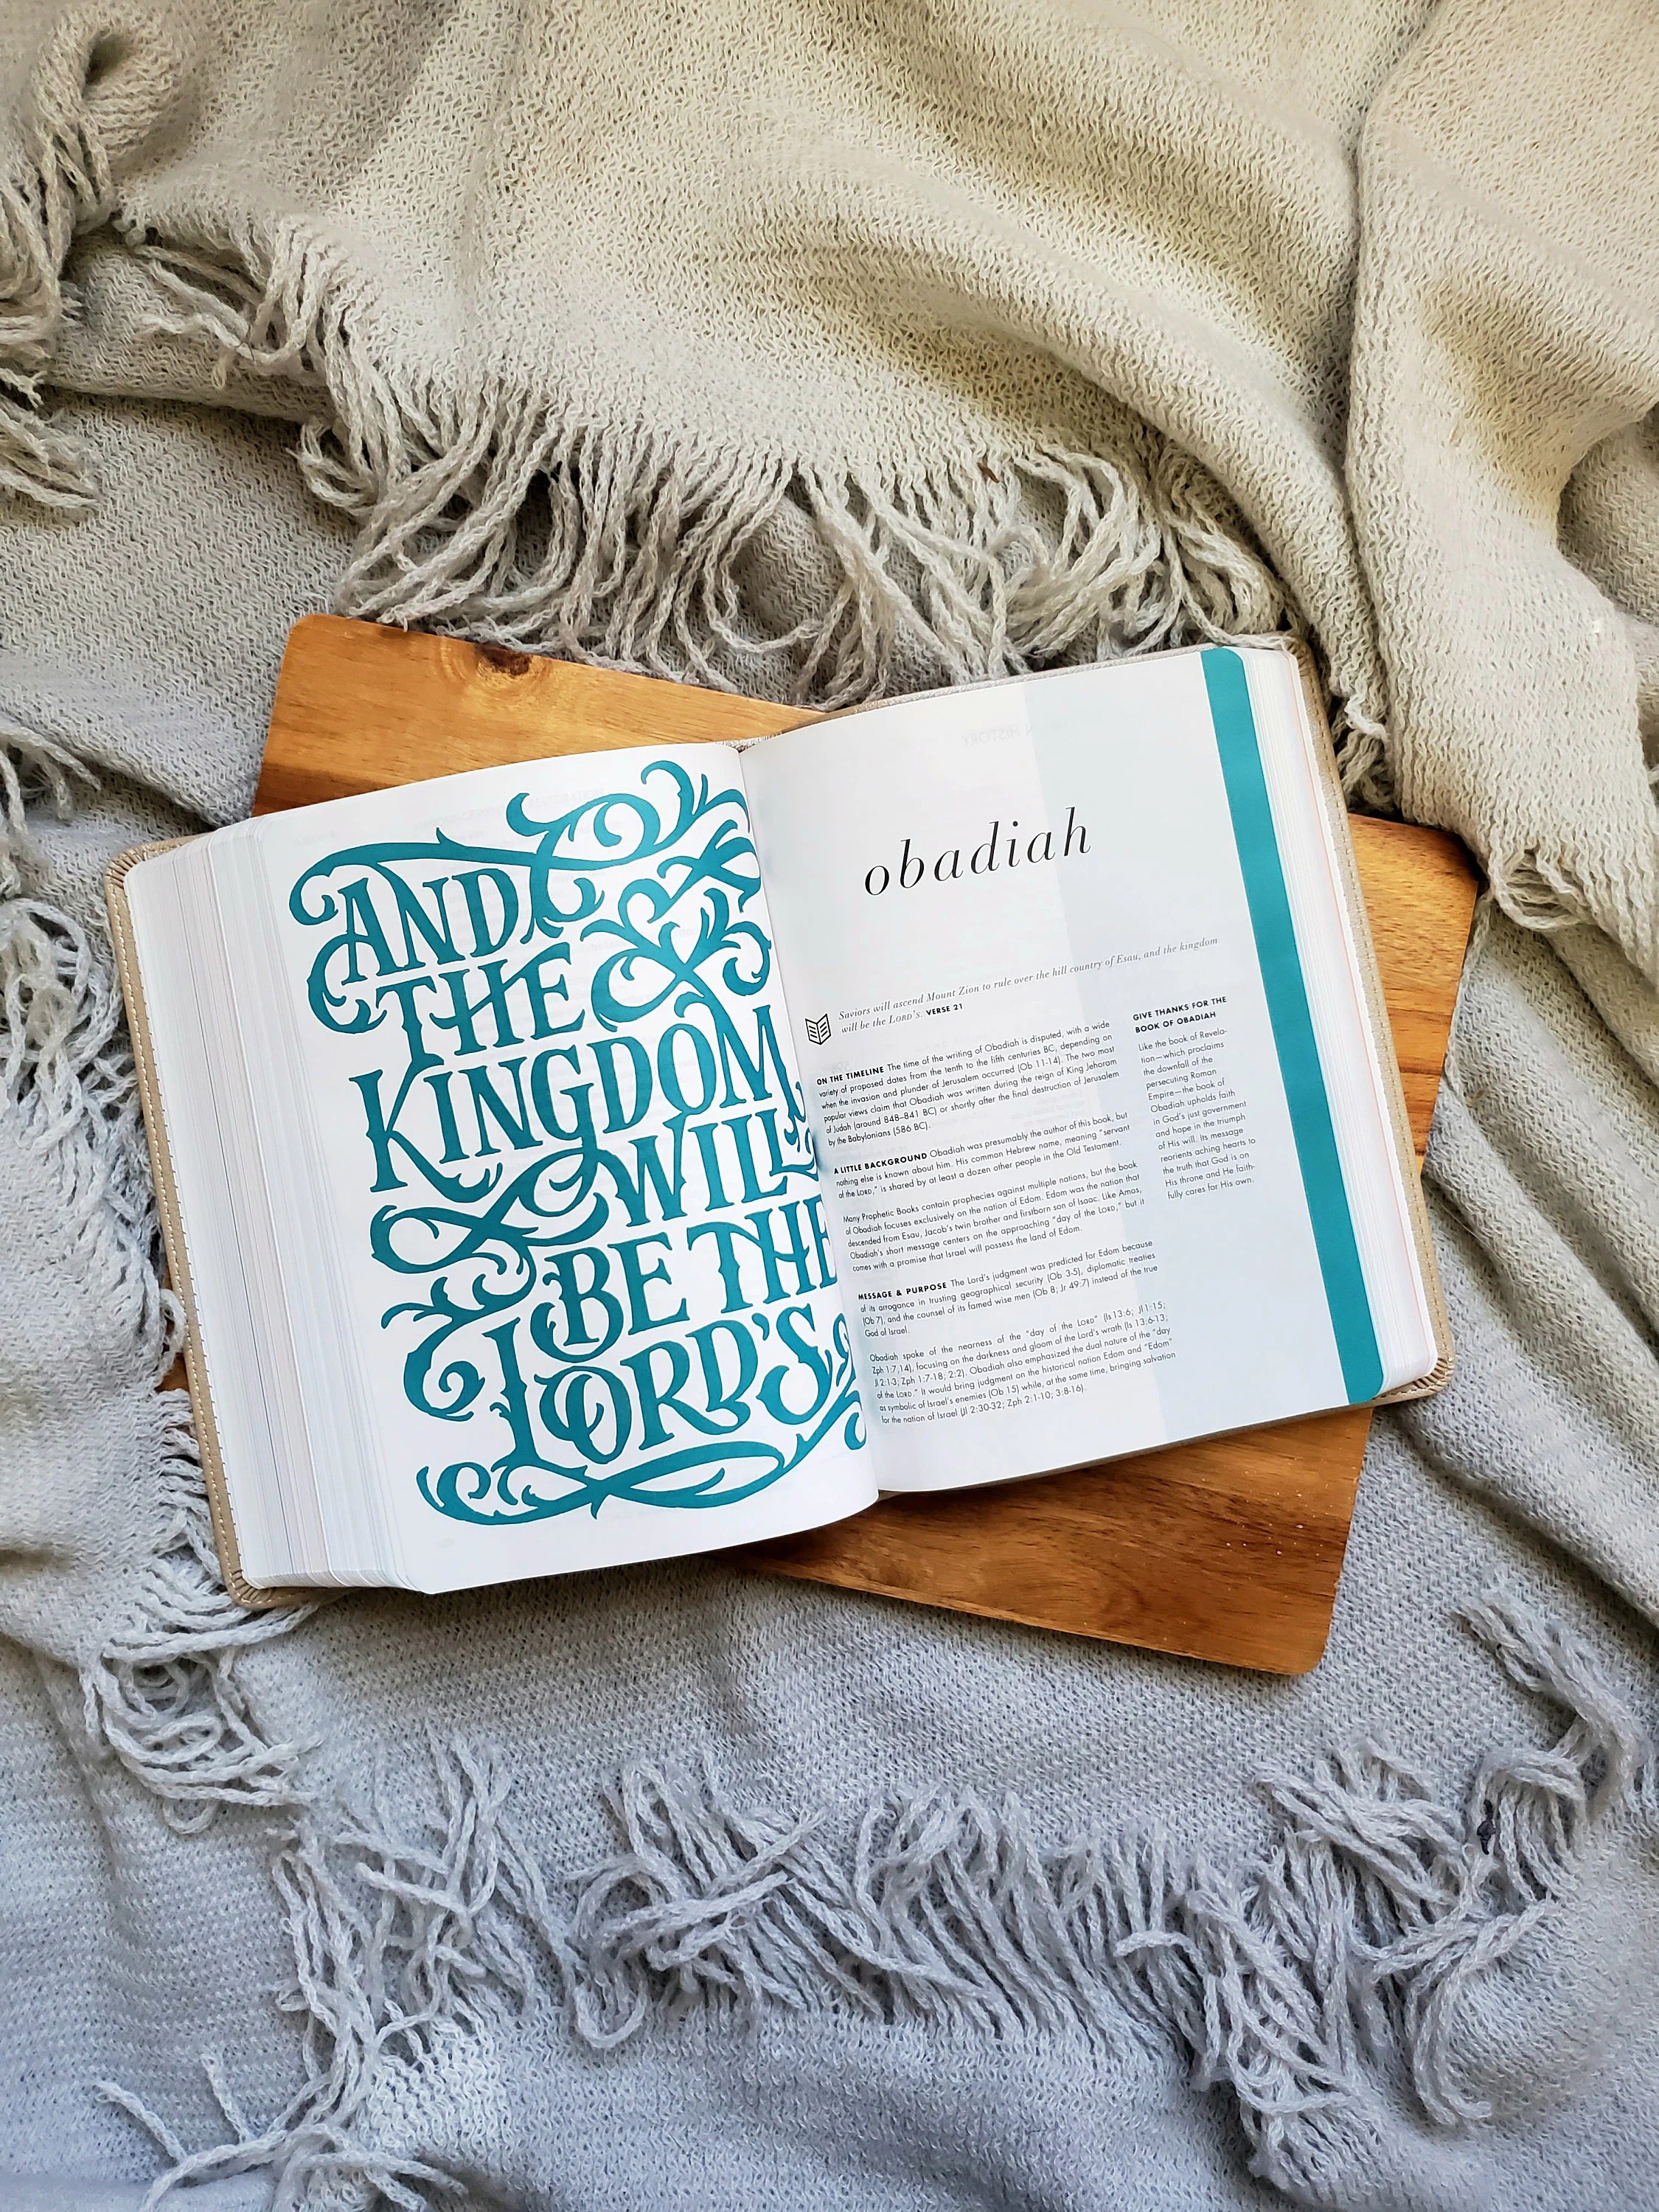 AND
THE
KINGDOM
WILL
BE THE
LORD'S
obadiah
Saviors will ascend Mount Zion to rule over the hill country of Esau, and the kingdom
will be the LORD'S. VERSE 21
ON THE TIMELINE The time of the writing of Obadiah is disputed, with a wide
variety of proposed dates from the tenth to the fifth centuries BC, depending on
when the invasion and plunder of Jerusalem occurred (Ob 11-14). The two most
popular views claim that Obadiah was written during the reign of King Jehoram
of Judah (around 848–841 BC) or shortly after the final destruction of Jerusalem
by the Babylonians (586 BC).
A LITTLE BACKGROUND Obadiah was presumably the author of this book, but
nothing else is known about him. His common Hebrew name, meaning "servant
of the LORD," is shared by at least a dozen other people in the Old Testament.
Many Prophetic Books contain prophecies against multiple nations, but the book
of Obadiah focuses exclusively on the nation of Edom. Edom was the nation that
descended from Esau, Jacob's twin brother and firstborn son of Isaac. Like Amos,
Obadiah's short message centers on the approaching "day of the LORD," but it
comes with a promise that Israel will possess the land of Edom.
MESSAGE & PURPOSE The Lord's judgment was predicted for Edom because
of its arrogance in trusting geographical security (Ob 3-5), diplomatic treaties
(Ob 7), and the counsel of its famed wise men (Ob 8; Jr 49:7) instead of the true
God of Israel.
Obadiah spoke of the nearness of the "day of the LORD" (Is 13:6; Jl 1:15;
Zph 1:7,14), focusing on the darkness and gloom of the Lord's wrath (Is 13:6-13;
Jl 2:1-3; Zph 1:7-18; 2:2). Obadiah also emphasized the dual nature of the "day
of the LORD." It would bring judgment on the historical nation Edom and "Edom"
as symbolic of Israel's enemies (Ob 15) while, at the same time, bringing salvation
for the nation of Israel (Jl 2:30-32; Zph 2:1-10; 3:8-16).
GIVE THANKS FOR THE
BOOK OF OBADIAH
Like the book of Revela-
tion—which proclaims
the downfall of the
persecuting Roman
Empire—the book of
Obadiah upholds faith
in God's just government
and hope in the triumph
of His will. Its message
reorients aching hearts to
the truth that God is on
His throne and He faith-
fully cares for His own.